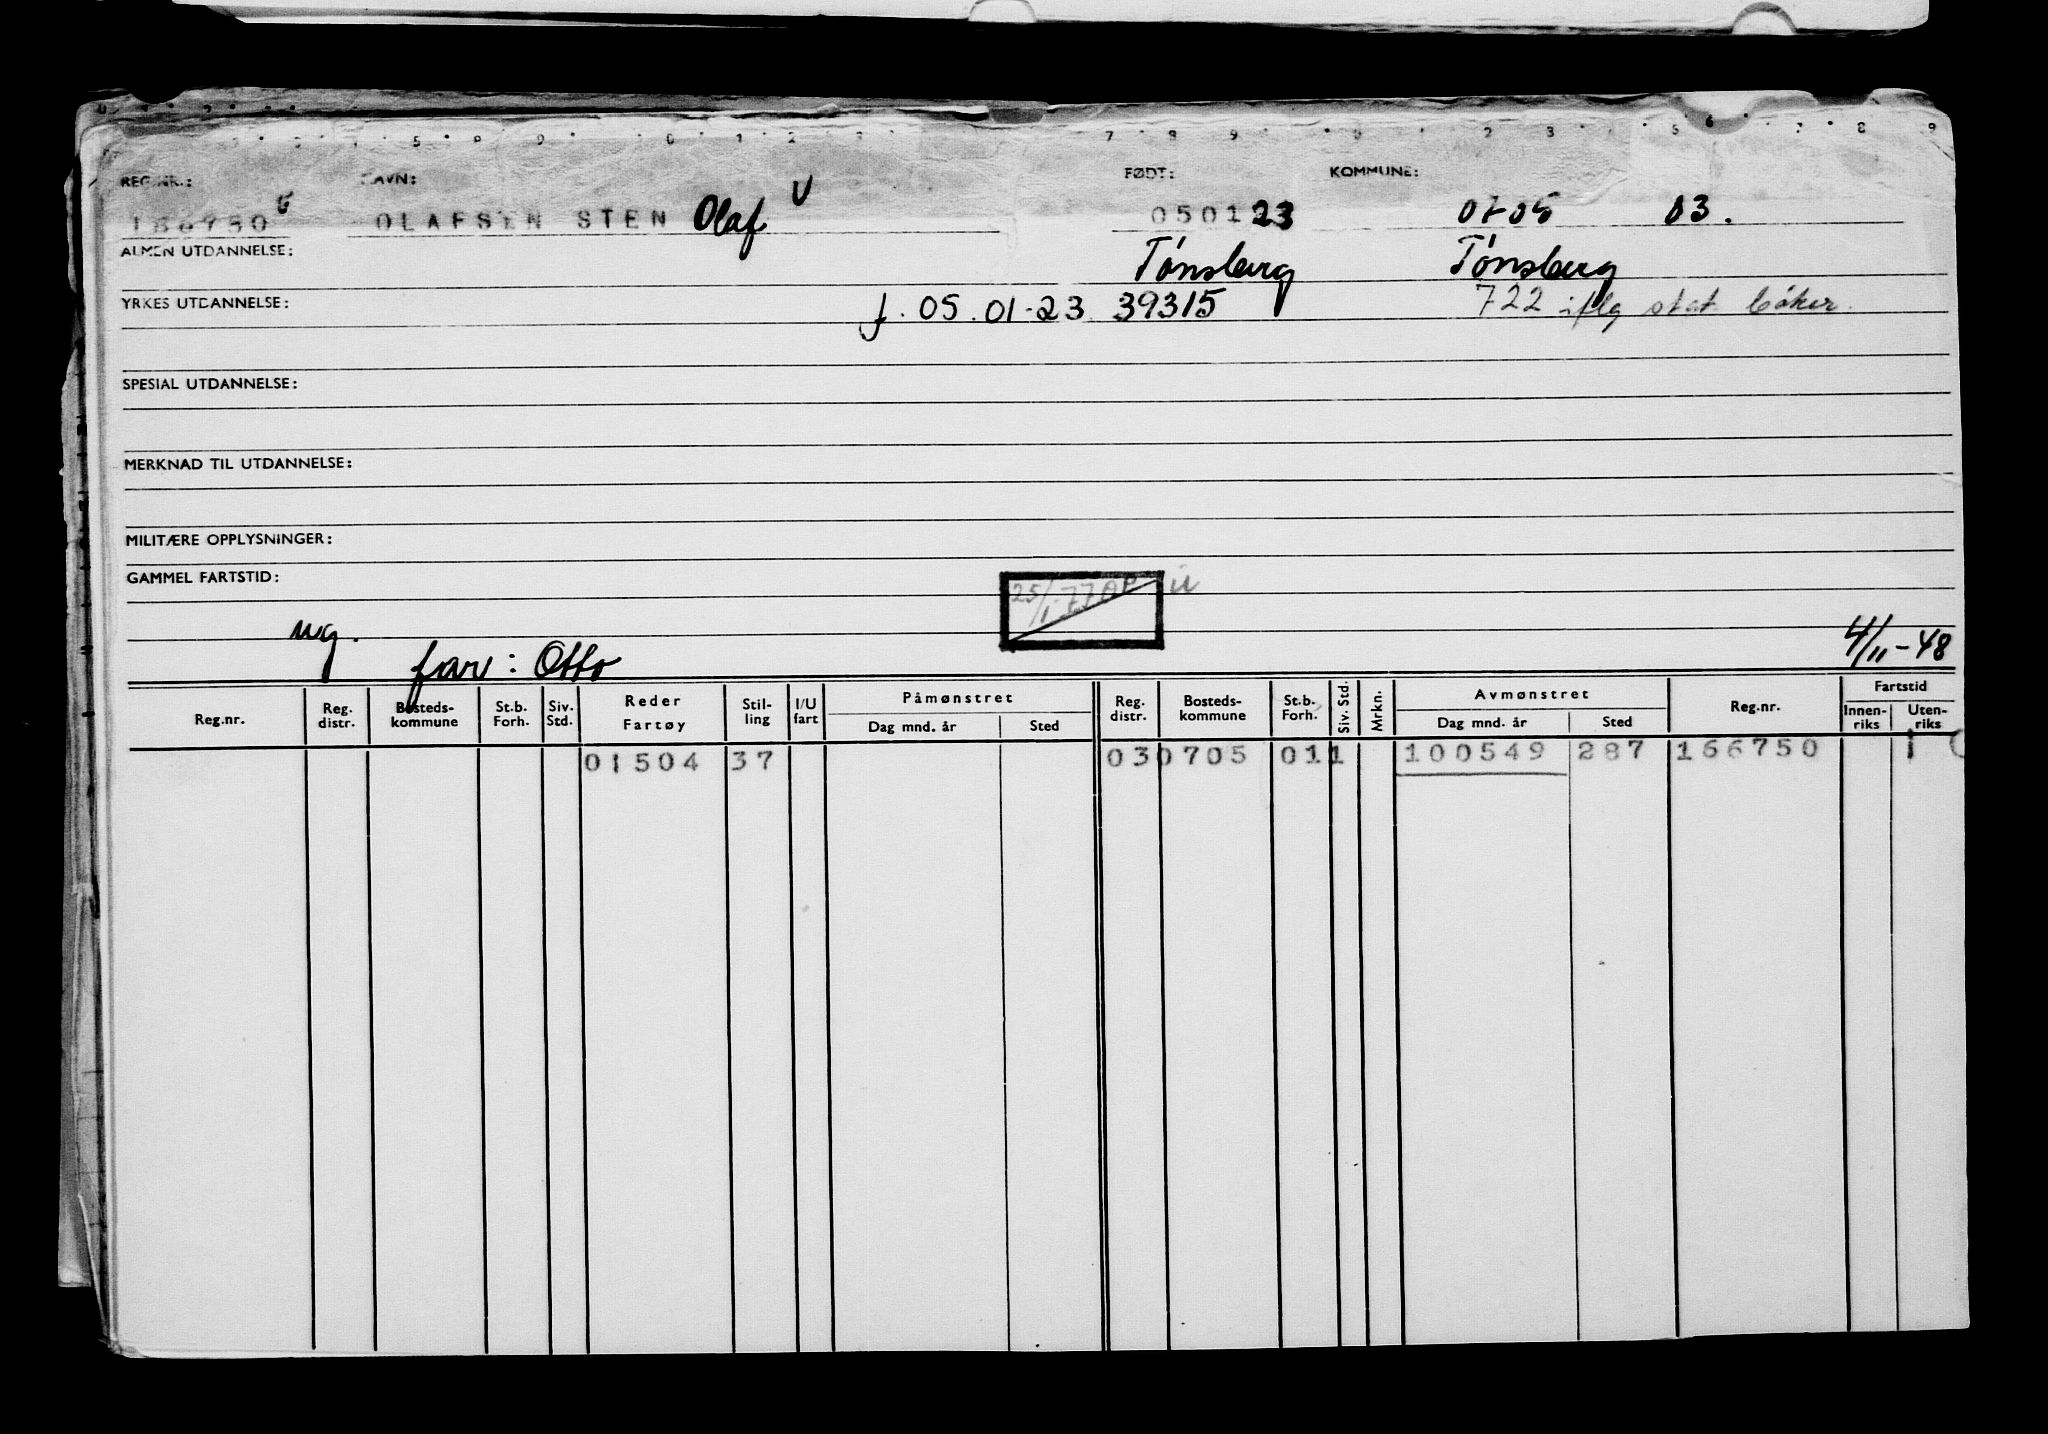 REG.NR.: NAVN: FØDT: KOMMUNE:
OLAFSEN STEN Olaf 050123 0705 03.
ALMEN UTDANNELSE: Tønsberg Tønsberg
YRKES UTDANNELSE: f. 05.01-23 39315 722 iflg stat bøker.
SPESIAL UTDANNELSE:
MERKNAD TIL UTDANNELSE:
MILITÆRE OPPLYSNINGER:
GAMMEL FARTSTID:
25/1-77
ug.
far: Otto 4/11-48
Reg.nr. Reg. distr. Bosteds-kommune St.b. Forh. Siv. Std. Reder Fartøy Stil-ling I/U fart Påmønstret Dag mnd. år Sted Reg. distr. Bosteds-kommune St.b. Forh. Siv. Std. Mrkn. Avmønstret Dag mnd. år Sted Reg.nr. Fartstid Innen-riks Uten-riks
01504 37 030705 011 100549 287 166750